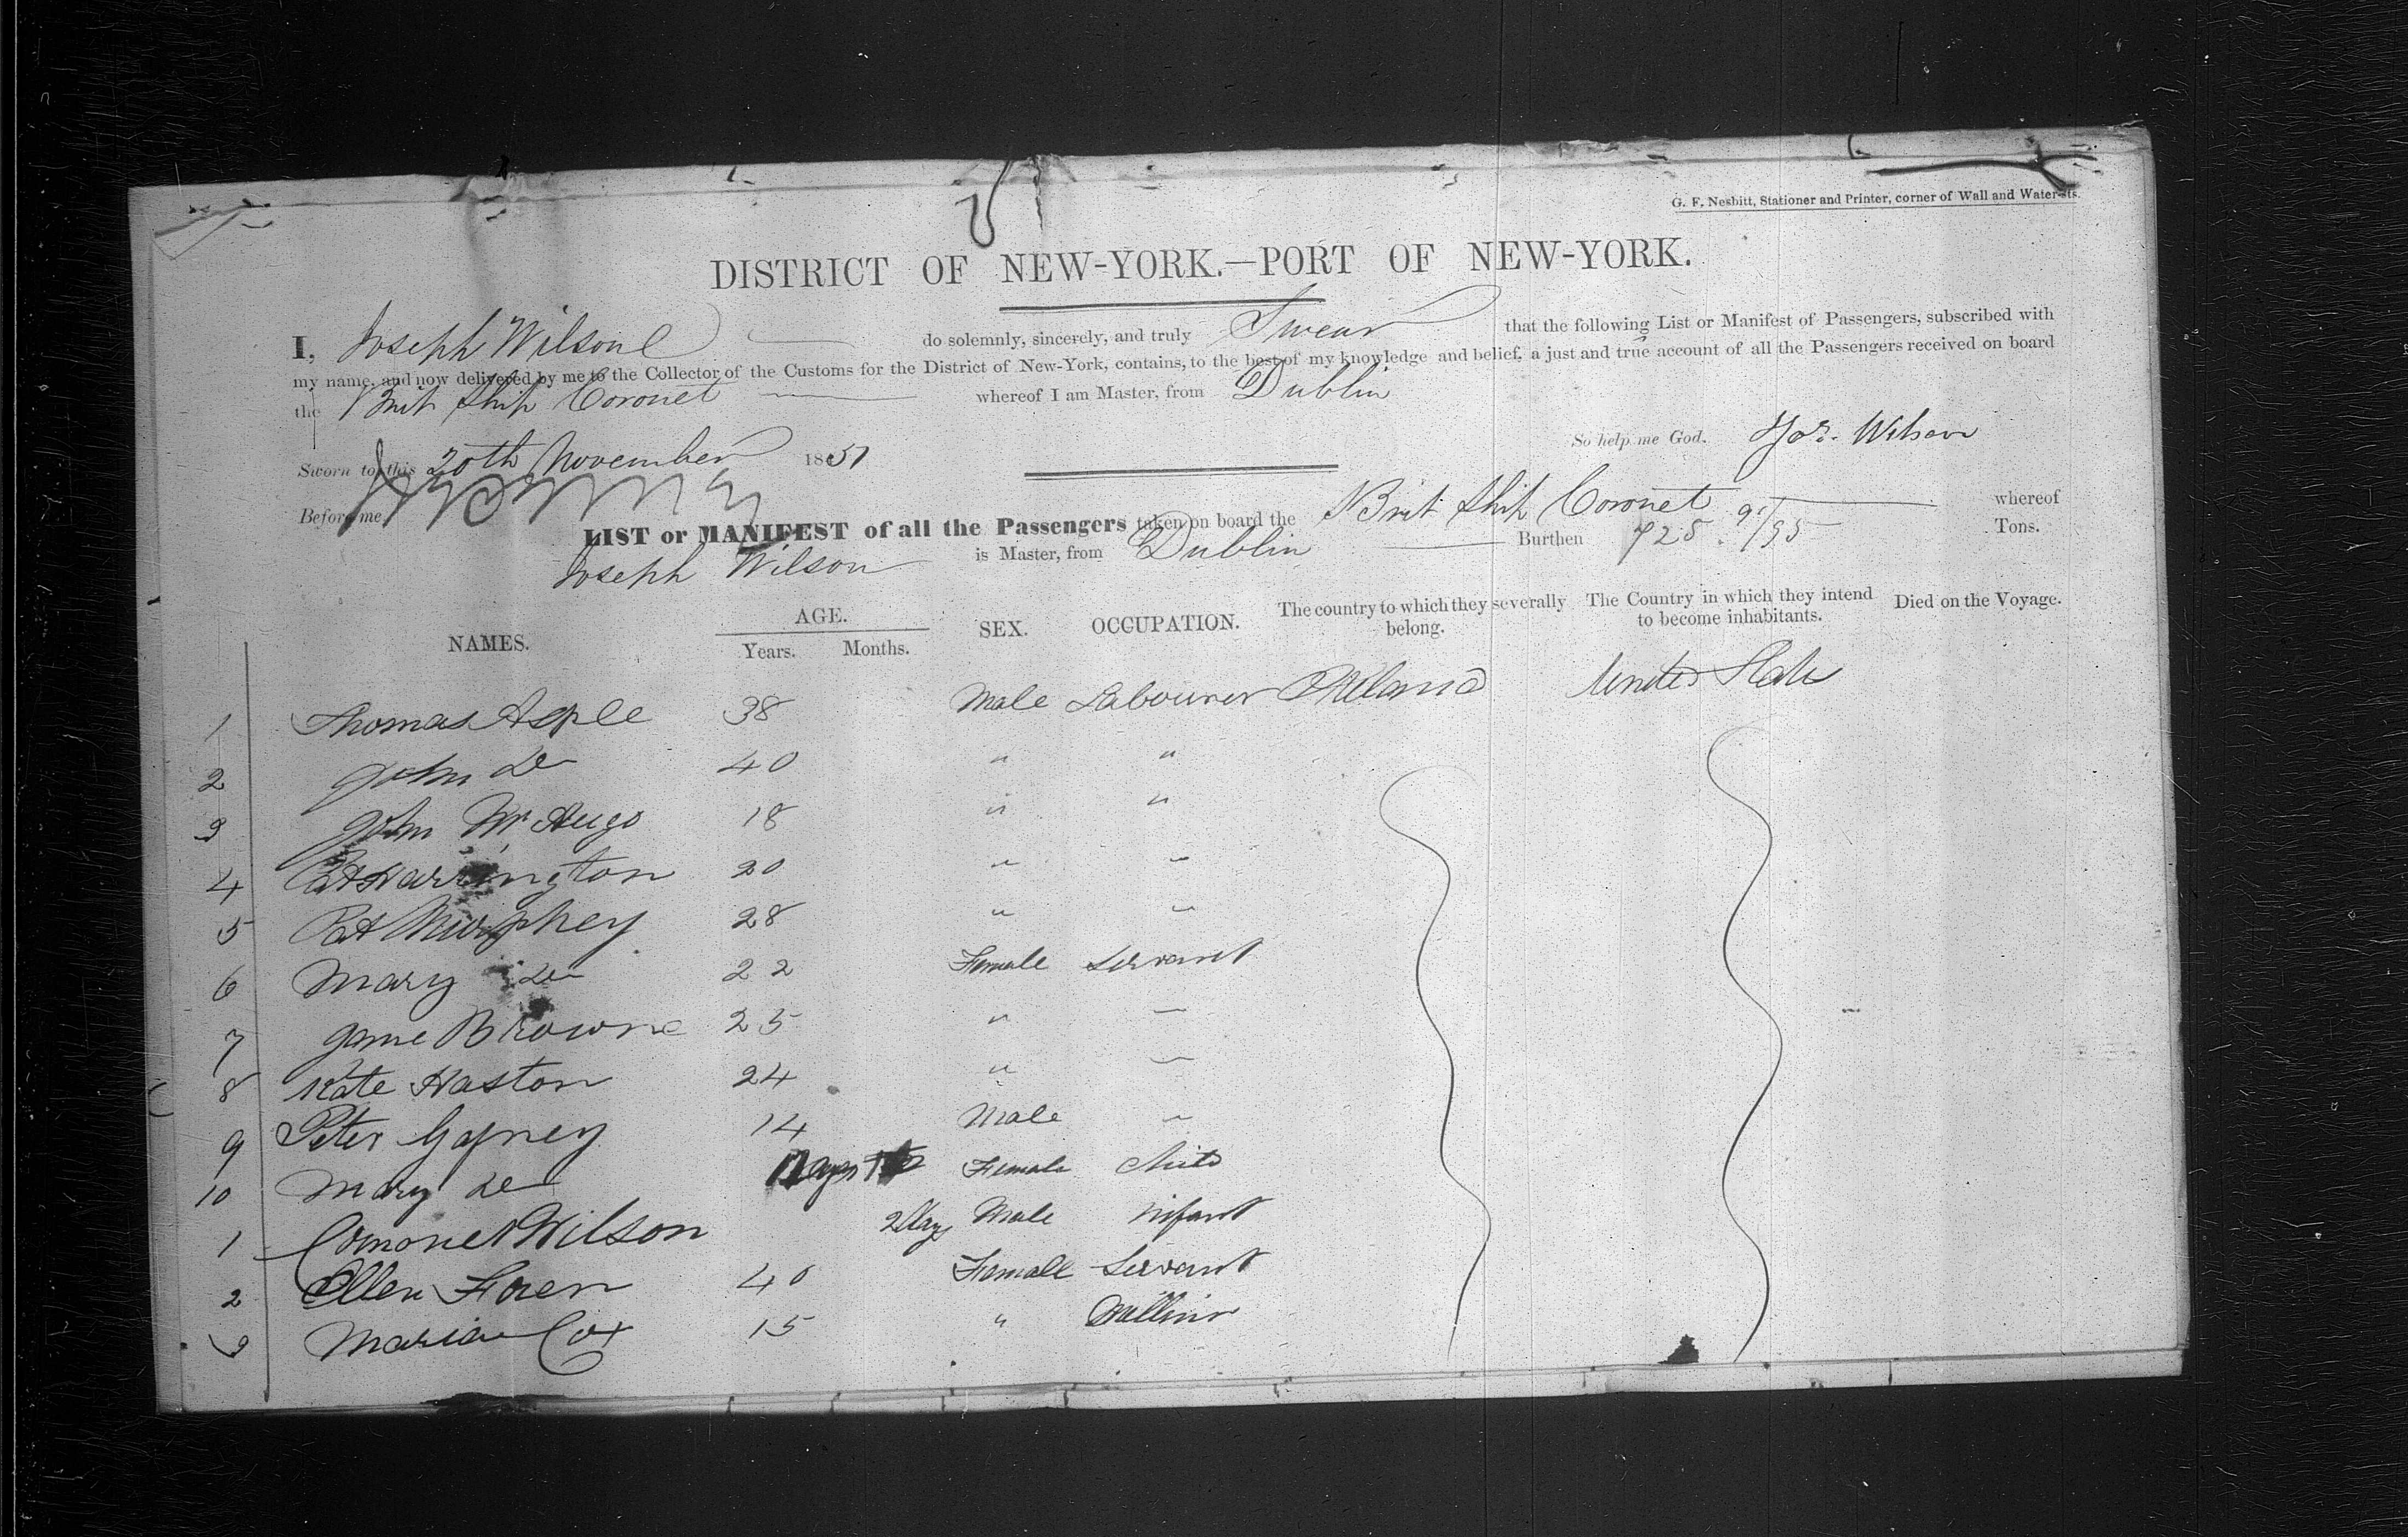 G. F. Nesbitt, Stationer and Printer, corner of Wall and Water-sts.
DISTRICT OF NEW-YORK.—PORT OF NEW-YORK.
I, Joseph Wilson do solemnly, sincerely, and truly Swear that the following List or Manifest of Passengers, subscribed with
my name, and now delivered by me to the Collector of the Customs for the District of New-York, contains, to the best of my knowledge and belief, a just and true account of all the Passengers received on board
the Brit Ship Coronet whereof I am Master, from Dublin
So help me God. Jos. Wilson
Sworn to this 20th November 1851
Before me
LIST or MANIFEST of all the Passengers taken on board the Brit Ship Coronet whereof
Joseph Wilson is Master, from Dublin Burthen 725 9/95 Tons.
NAMES. AGE. Years. Months. SEX. OCCUPATION. The country to which they severally belong. The Country in which they intend to become inhabitants. Died on the Voyage.
1 Thomas Asple 38 Male Labourer Ireland United States
2 John Do 40 " "
3 John McHugo 18 " "
4 Pat Harrington 20 " "
5 Pat Murphey 28 " "
6 Mary Do 22 Female Servant
7 Jane Browne 25 " "
8 Kate Haston 24 " "
9 Peter Gafney 14 Male "
10 Mary Do Female Child
1 Wilson 2 Days Male infant
2 Ellen Foren 40 Female Servant
3 Maria Cox 15 " Milliner